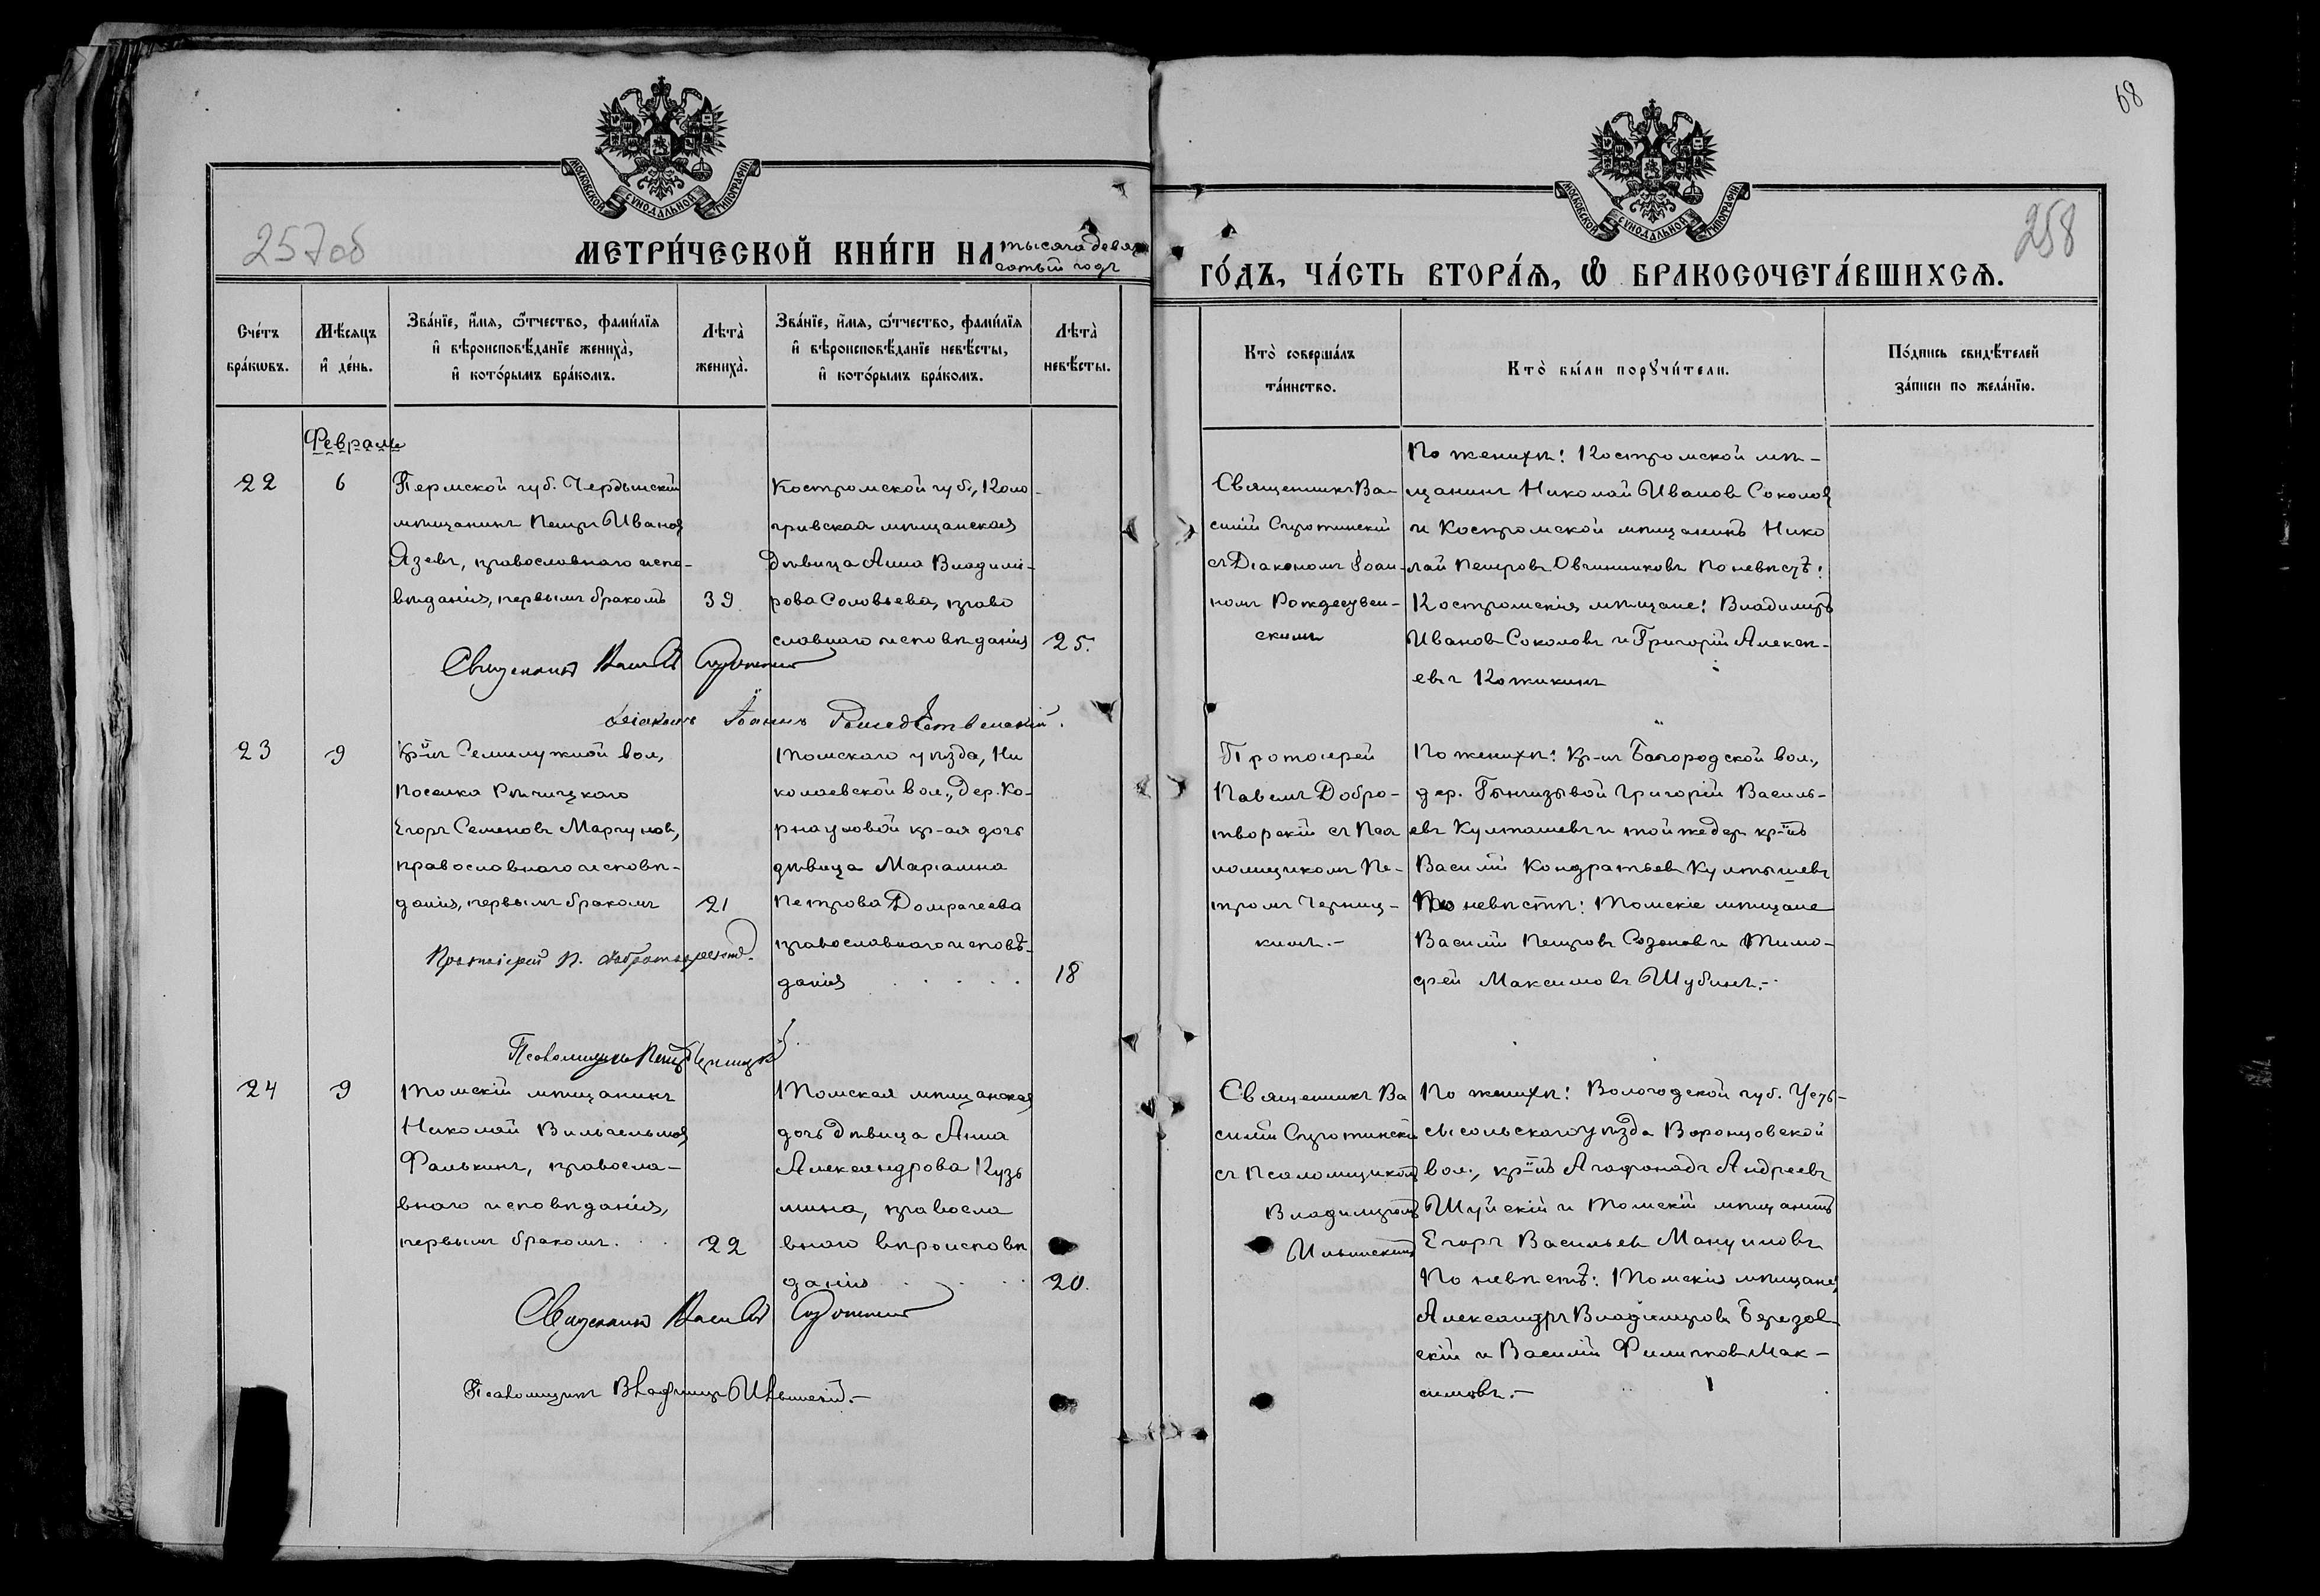 68
МОСКОВСКОЙ СѴНОДАЛЬНОЙ ТИПОГРАФІИ
МОСКОВСКОЙ СѴНОДАЛЬНОЙ ТИПОГРАФІИ
257об
258
МЕТРИ́ЧЕСКОЙ КНИ́ГИ НА тысяча девять
сотый годъ
ГО́ДЪ, ЧА́СТЬ ВТОРА́Я, Ѡ БРАКОСОЧЕТА́ВШИХСѦ.
Сче́тъ
бра́кωвъ.
Мѣсяцъ
и де́нь.
Зва́нїе, и́мя, ѻ҆́тчество, фами́лїя
и вѣроисповѣ́данїе жениха̀,
и кото́рымъ бра́комъ.
Лѣта̀
жениха̀.
Зва́нїе, и́мя, ѻ҆́тчество, фами́лїя
и вѣроисповѣ́данїе невѣ́сты,
и кото́рымъ бра́комъ.
Лѣта̀
невѣ́сты.
Кто̀ соверша́лъ
та́инство.
Кто̀ бы́ли порꙋчи́тели.
По́дпись свидѣ́телей
за́писи по жела́нїю.
Февраль
22
6
Пермской губ. Чердынскій
мѣщанинъ Петръ Иванов
Язевъ, православнаго испо-
вѣданія, первымъ бракомъ
39
Костромской губ., Коло-
гривская мѣщанская
дѣвица Анна Владимі-
рова Соловьева, право
славнаго исповѣданія
25.
Священникъ Ва-
силій Сиротинскій
съ Діакономъ Іоан-
номъ Рождествен-
скимъ
По женихѣ: Костромской мѣ-
щанинъ Николай Иванов Соколов
и Костромской мѣщанинъ Нико
лай Петровъ Овчинниковъ По невѣстѣ:
Костромскія мѣщане: Владиміръ
Иванов Соколовъ и Григорій Алексѣ-
евъ Кожикинъ
Священникъ Василій Сиротинскій
Діаконъ Іоаннъ Рождественскій.
23
9
Кр-нъ Семилужной вол,
поселка Рѣчицкаго
Егоръ Семеновъ Маргунов,
православнаго исповѣ-
данія, первымъ бракомъ
21
Томскаго уѣзда, Ни
колаевской вол., дер. Ко-
рнауховой кр-ая дочь
дѣвица Маріамна
Петрова Домрачеева
православнаго исповѣ-
данія
18
Протоіерей
Павелъ Добро-
творскій съ Пса
ломщикомъ Пе-
тромъ Черниц-
кимъ.-
По женихѣ: Кр-нъ Богородской вол.,
дер. Григорій Василь-
евъ и той же дер кр-нъ
Василій Кондратьев
По невѣстѣ: Томскіе мѣщане
Василій Петровъ Созонов и Тимо-
фей Максимовъ Шубинъ.-
Протоіерей П. Добротворскій.
Псаломщикъ Петръ Черницкій
24
9
Томскій мѣщанинъ
Николай Вильгельмов
Фалькинъ, правосла-
внаго исповѣданія,
первымъ бракомъ.
22
Томская мѣщанская
дочь дѣвица Анна
Александрова Кузь
мина, правосла
внаго вѣроисповѣ
данія
20.
Священникъ Ва
силій Сиротинскій
съ Псаломщиком
Владиміромъ
Ильинскимъ
По женихѣ: Вологодской губ. Усть-
сысольскаго уѣзда Воронцовской
вол., кр-нъ Агафонадъ Андреевъ
Шуйскій и Томскій мѣщанинъ
Егоръ Васильев Мануиловъ
По невѣстѣ: Томскія мѣщане:
Александръ Владиміров Березов-
скій и Василій Филиппов Мак-
симовъ.-
Священникъ Василій Сиротинскій
Псаломщикъ Владиміръ Ильинскій.-